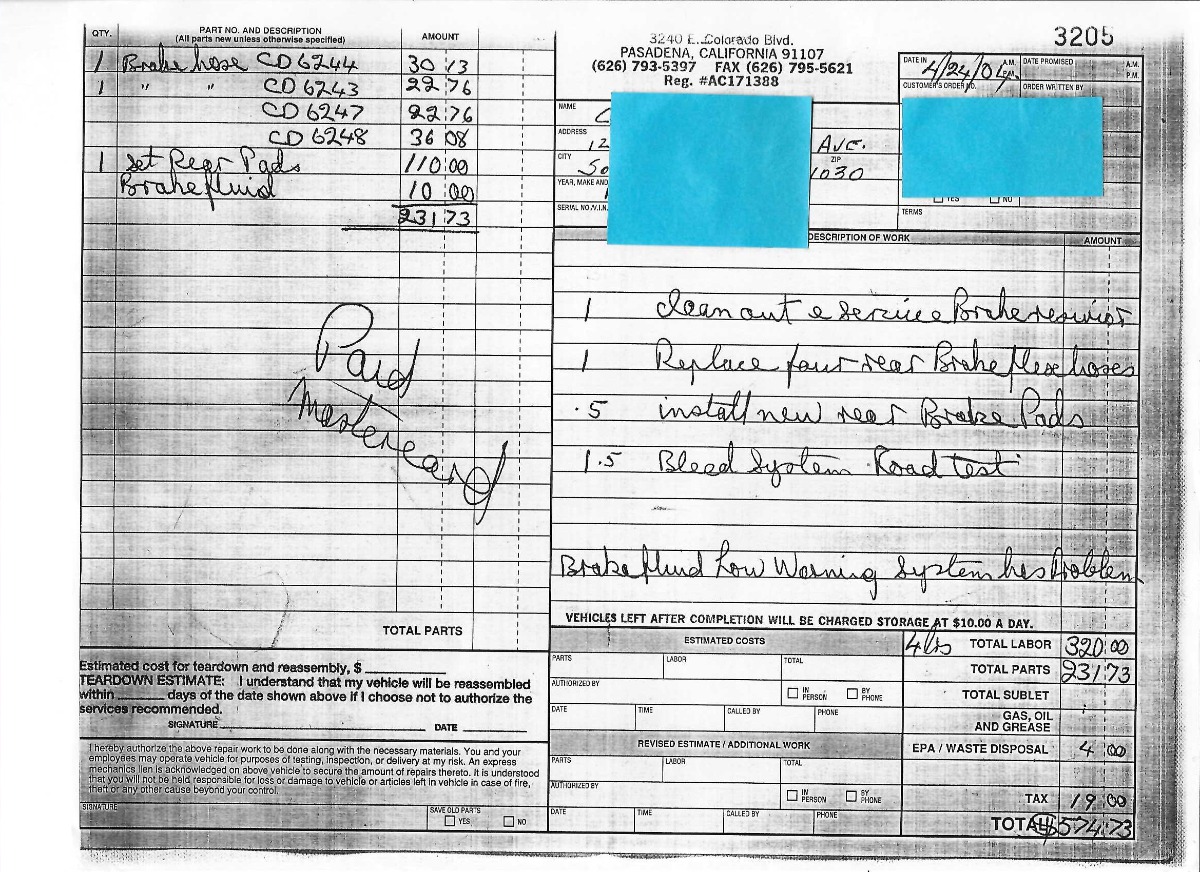 QTY. PART NO. AND DESCRIPTION AMOUNT
(All parts new unless otherwise specified)
1 Brake hose CD 6244 30 13
1 " " CD 6243 22 76
CD 6247 22 76
CD 6248 36 08
1 set Rear Pads 110 00
Brake fluid 10 00
231 73
Paid
Mastercard
TOTAL PARTS
Estimated cost for teardown and reassembly, $
TEARDOWN ESTIMATE: I understand that my vehicle will be reassembled
within days of the date shown above if I choose not to authorize the
services recommended.
SIGNATURE DATE
I hereby authorize the above repair work to be done along with the necessary materials. You and your
employees may operate vehicle for purposes of testing, inspection, or delivery at my risk. An express
mechanics lien is acknowledged on above vehicle to secure the amount of repairs thereto. It is understood
that you will not be held responsible for loss or damage to vehicle or articles left in vehicle in case of fire,
theft or any other cause beyond your control.
SIGNATURE SAVE OLD PARTS
YES NO
3240 E. Colorado Blvd.
PASADENA, CALIFORNIA 91107
(626) 793-5397 FAX (626) 795-5621
Reg. #AC171388
3205
DATE IN 4/24/01 A.M. P.M. DATE PROMISED A.M. P.M.
CUSTOMER'S ORDER NO. ORDER WRITTEN BY
NAME C
ADDRESS 12 Ave.
CITY So ZIP 1030
YEAR, MAKE AND
SERIAL NO./V.I.N.
YES NO
TERMS
DESCRIPTION OF WORK AMOUNT
1 Clean out & Service Brake resivior
1 Replace four rear Brake flexe hoses
.5 install new rear Brake Pads
1.5 Bleed System. Road test
Brake fluid Low Warning System has Problem
VEHICLES LEFT AFTER COMPLETION WILL BE CHARGED STORAGE AT $10.00 A DAY.
ESTIMATED COSTS
PARTS LABOR TOTAL
AUTHORIZED BY IN PERSON BY PHONE
DATE TIME CALLED BY PHONE
REVISED ESTIMATE / ADDITIONAL WORK
PARTS LABOR TOTAL
AUTHORIZED BY IN PERSON BY PHONE
DATE TIME CALLED BY PHONE
TOTAL LABOR 320 00
TOTAL PARTS 231 73
TOTAL SUBLET
GAS, OIL
AND GREASE
EPA / WASTE DISPOSAL 4 00
TAX 19 00
TOTAL $574 73